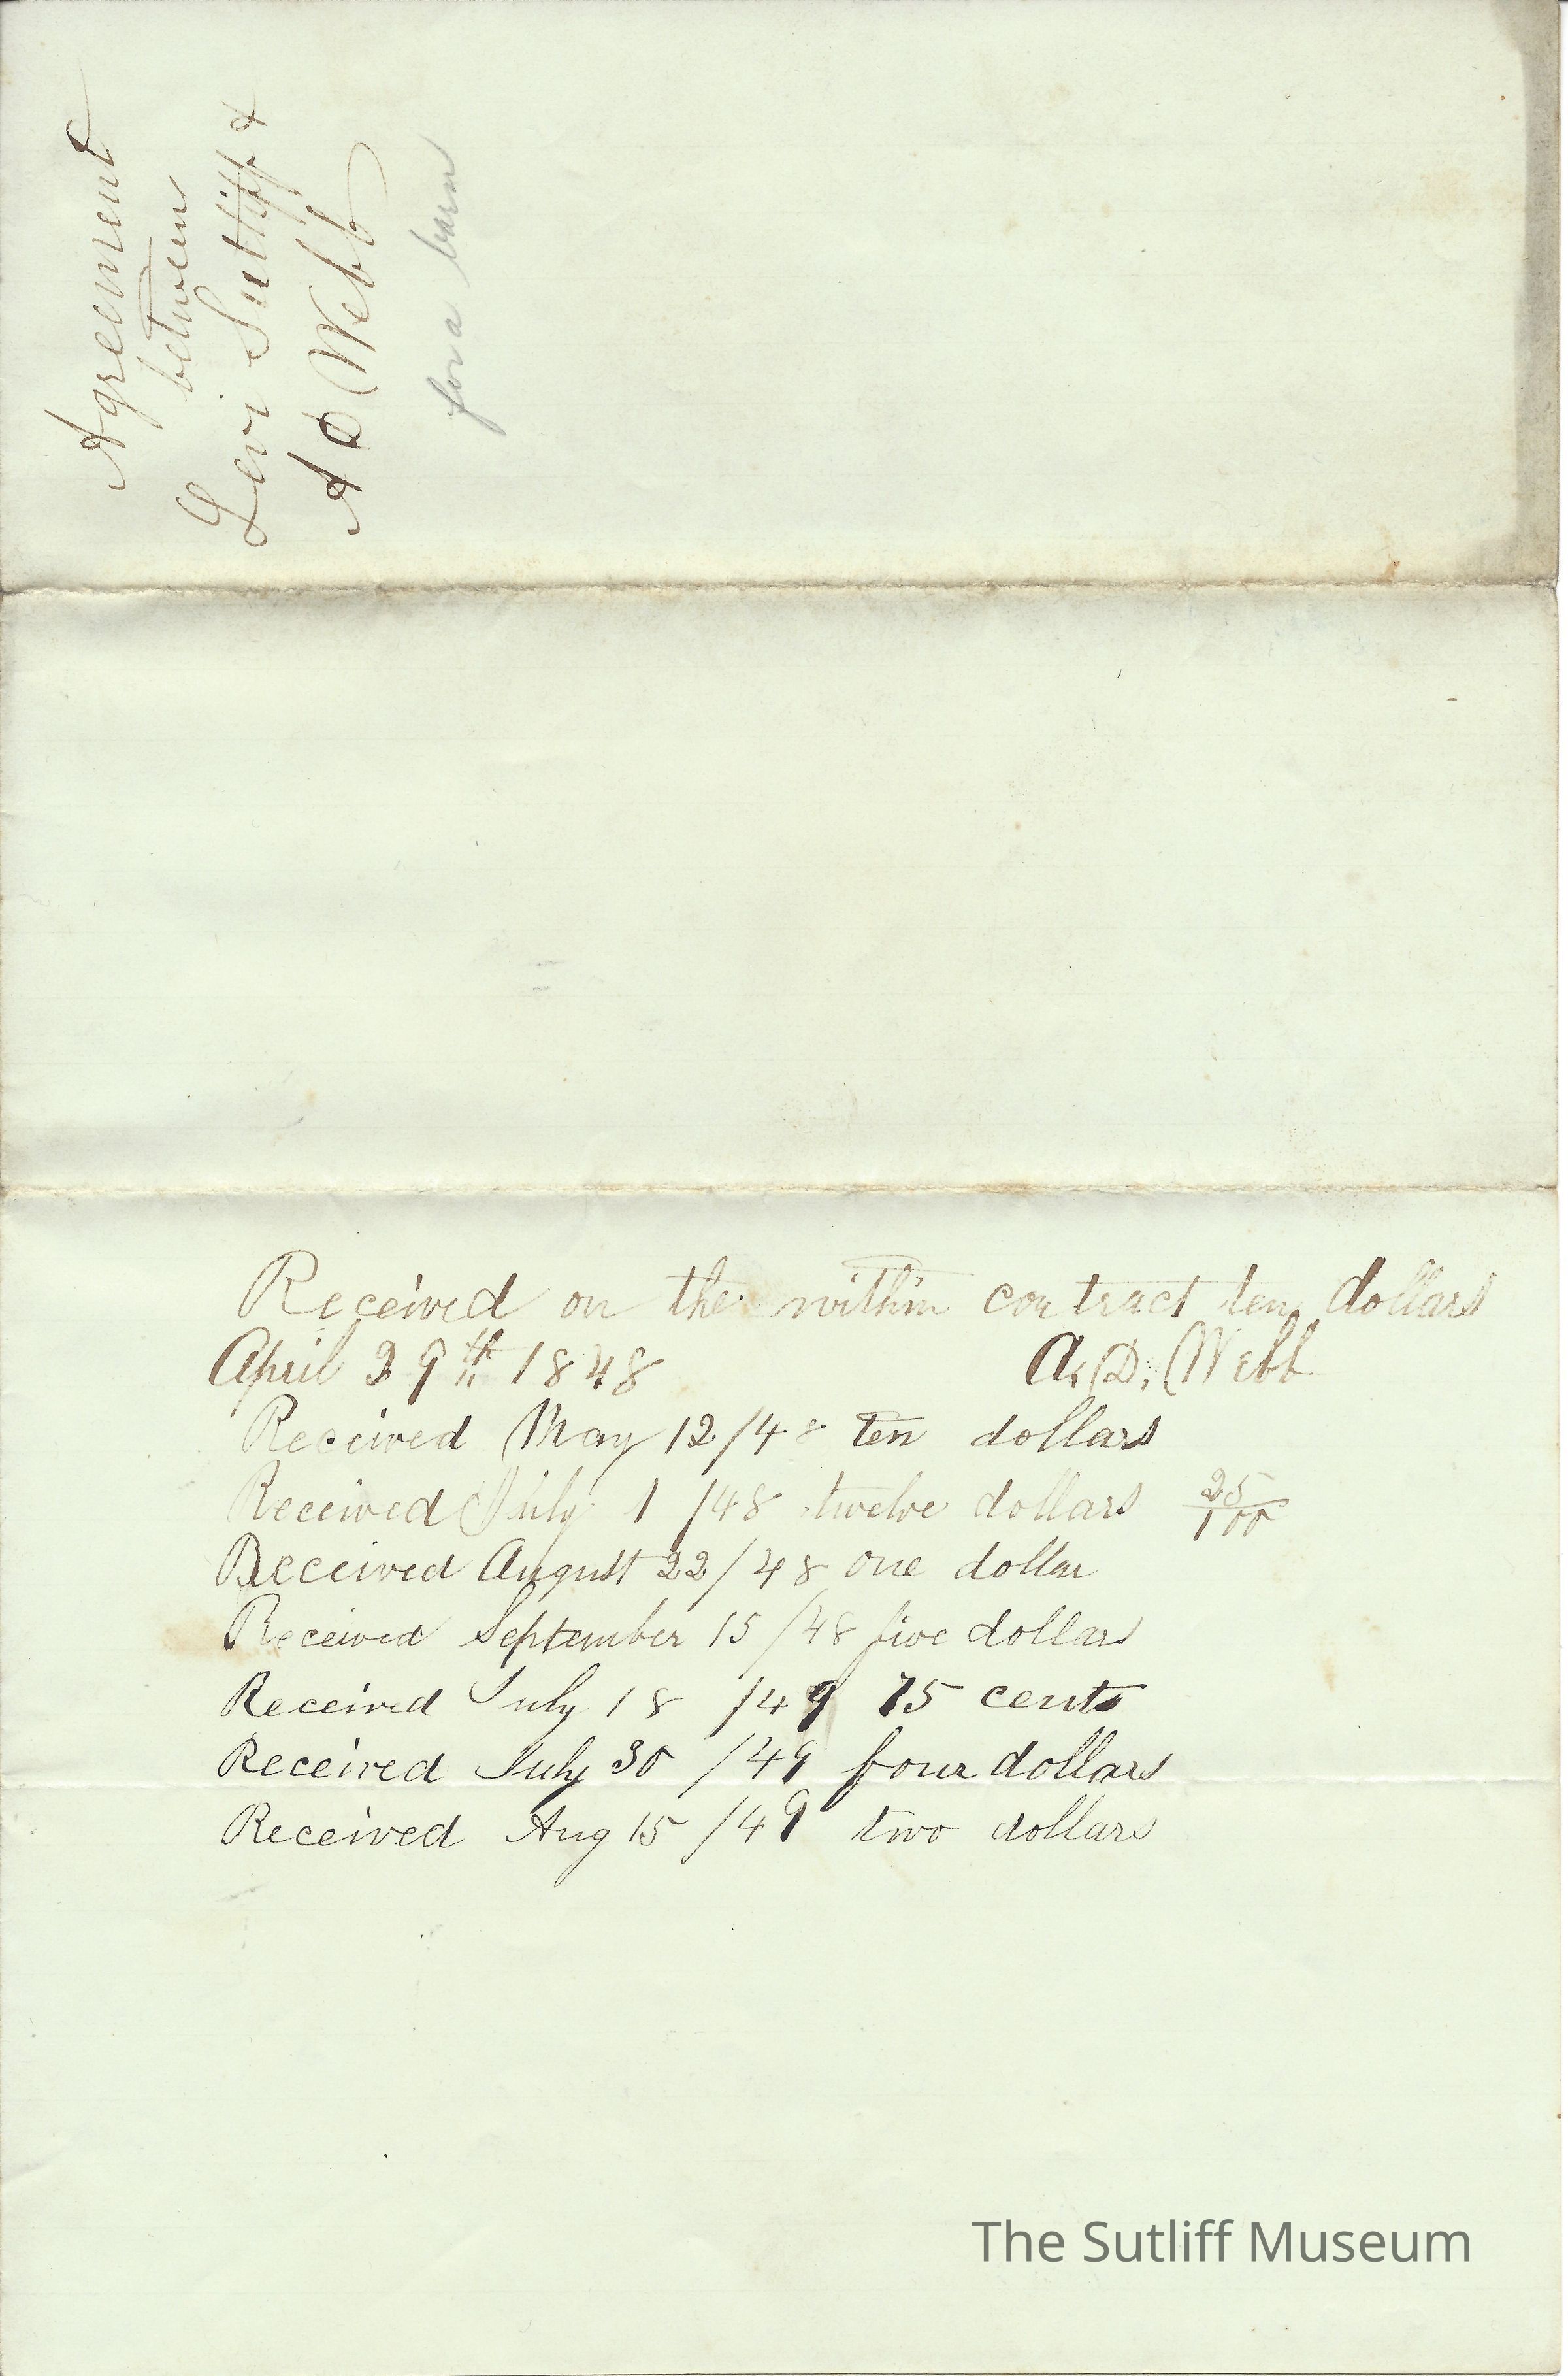 Agreement
between
Levi Sutliff &
A D Webb
for a barn
Received on the within contract ten dollars
April 29th 1848 A. D. Webb
Received May 12/48 ten dollars
Received July 1 /48 twelve dollars 25/100
Received August 22/48 one dollar
Received September 15/48 five dollars
Received July 18 /49 75 cents
Received July 30 /49 four dollars
Received Aug 15 /49 two dollars
The Sutliff Museum